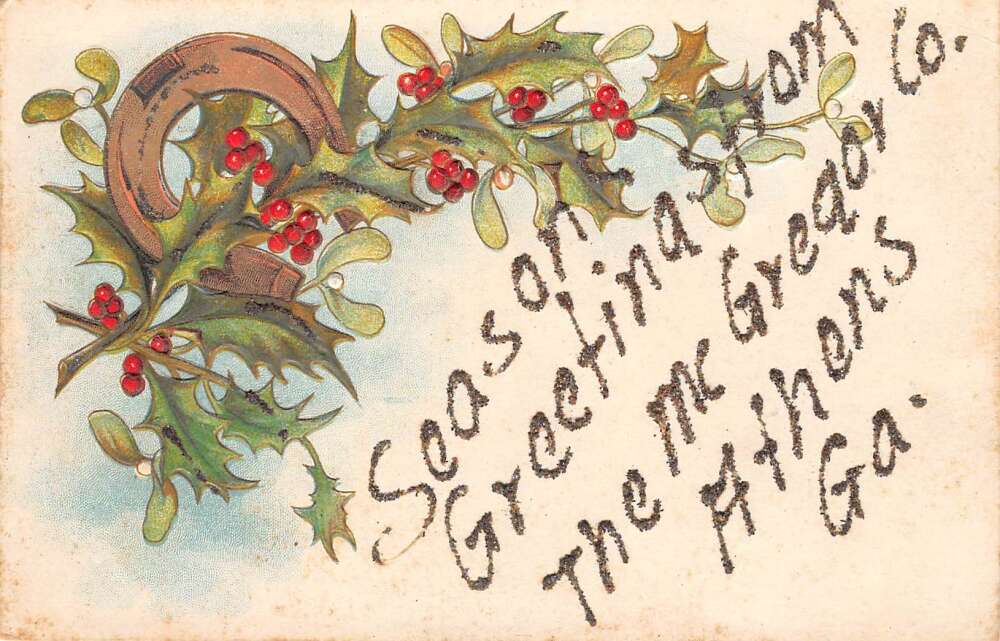 Season
Greetings from
The Mc Gregor Co.
Athens
Ga.